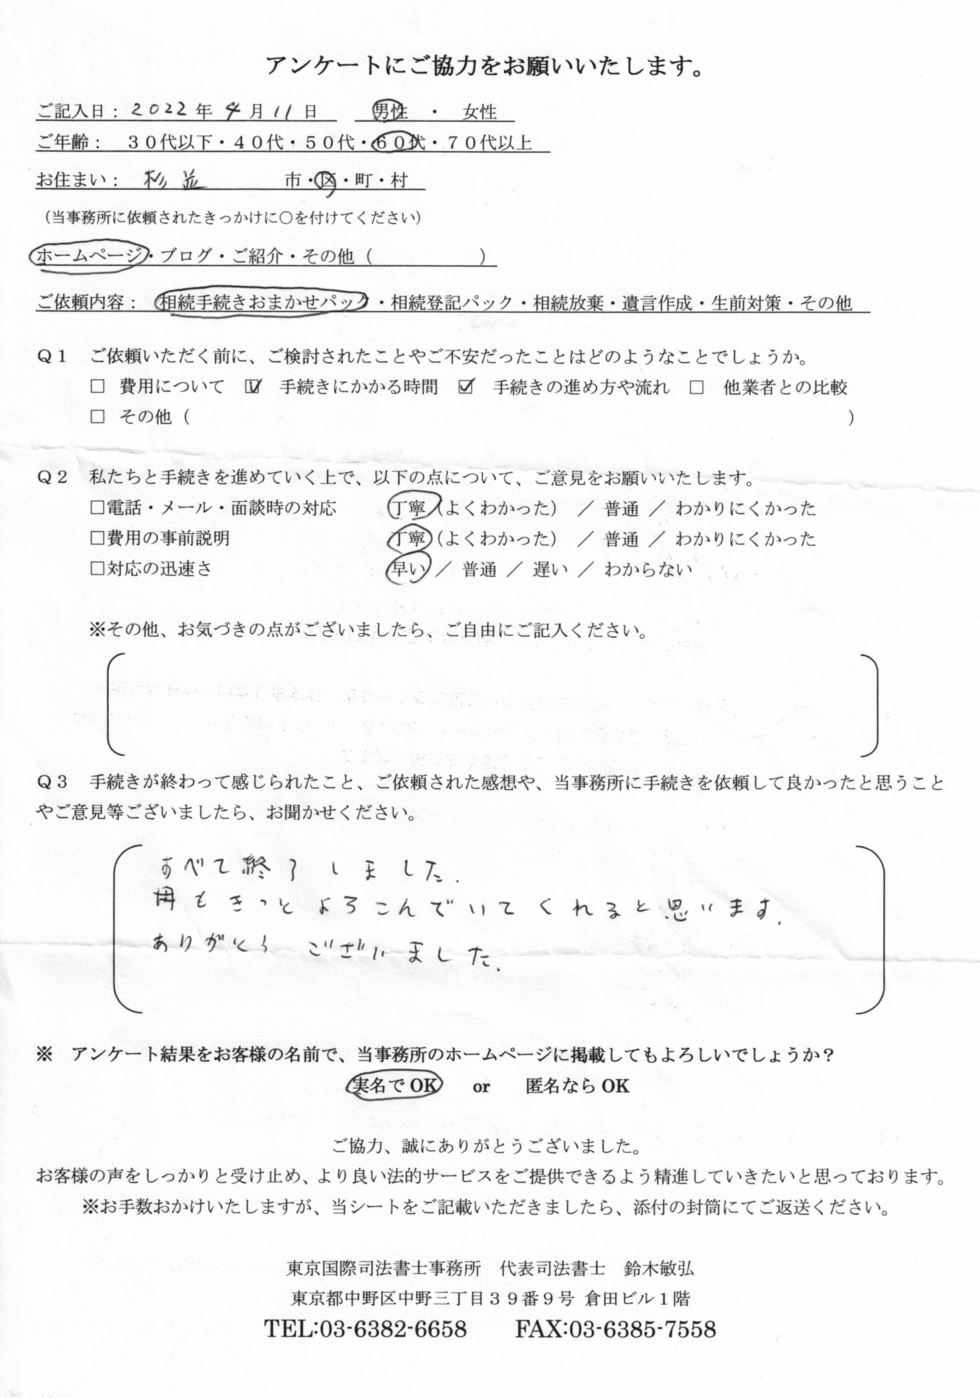 アンケートにご協力をお願いいたします。
ご記入日：2022年4月11日　男性　・　女性
ご年齢：　３０代以下・４０代・５０代・６０代・７０代以上
お住まい：　杉並　市・区・町・村
（当事務所に依頼されたきっかけに○を付けてください）
ホームページ・ブログ・ご紹介・その他（　　　　　　）
ご依頼内容：　相続手続きおまかせパック・相続登記パック・相続放棄・遺言作成・生前対策・その他
Ｑ１　ご依頼いただく前に、ご検討されたことやご不安だったことはどのようなことでしょうか。
□　費用について　☑　手続きにかかる時間　☑　手続きの進め方や流れ　□　他業者との比較
□　その他（　　　　　　　　　　　　）
Ｑ２　私たちと手続きを進めていく上で、以下の点について、ご意見をお願いいたします。
□電話・メール・面談時の対応　丁寧（よくわかった）　／　普通　／　わかりにくかった
□費用の事前説明　丁寧（よくわかった）　／　普通　／　わかりにくかった
□対応の迅速さ　早い　／　普通　／　遅い　／　わからない
※その他、お気づきの点がございましたら、ご自由にご記入ください。
Ｑ３　手続きが終わって感じられたこと、ご依頼された感想や、当事務所に手続きを依頼して良かったと思うこと
やご意見等ございましたら、お聞かせください。
すべて終了しました.
母もきっとよろこんでいてくれると思います.
ありがとうございました.
※　アンケート結果をお客様の名前で、当事務所のホームページに掲載してもよろしいでしょうか？
実名でOK　or　匿名ならOK
ご協力、誠にありがとうございました。
お客様の声をしっかりと受け止め、より良い法的サービスをご提供できるよう精進していきたいと思っております。
※お手数おかけいたしますが、当シートをご記載いただきましたら、添付の封筒にてご返送ください。
東京国際司法書士事務所　代表司法書士　鈴木敏弘
東京都中野区中野三丁目３９番９号 倉田ビル１階
TEL:03-6382-6658　FAX:03-6385-7558